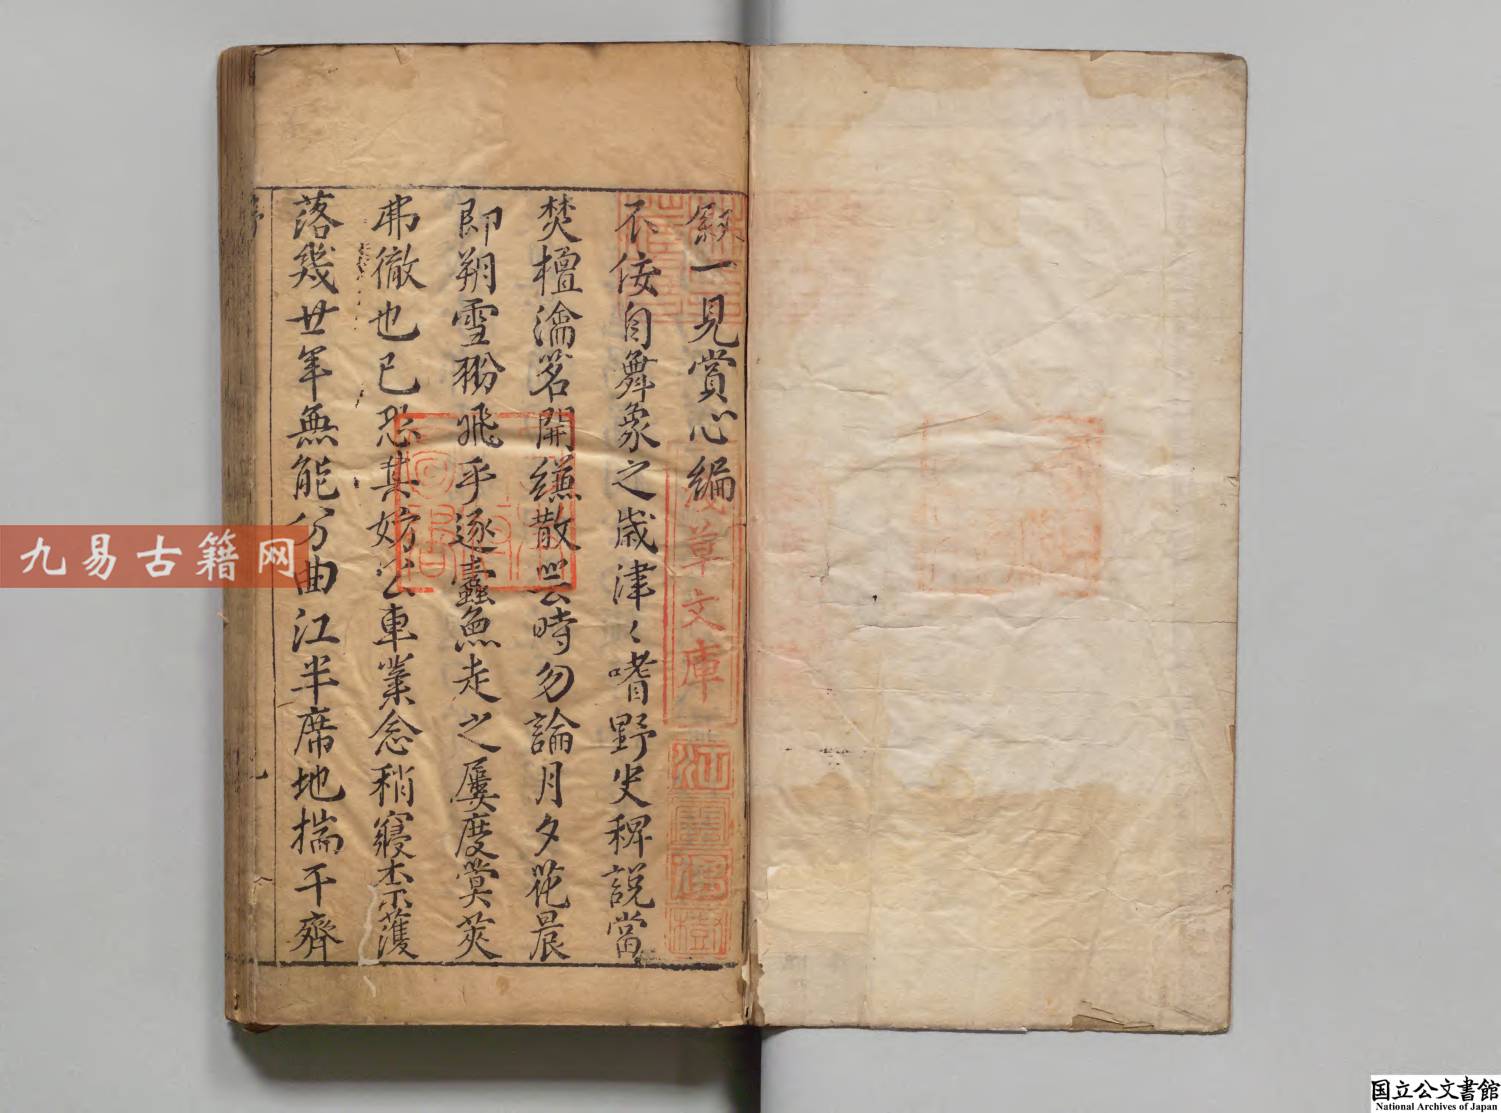 敘一見賞心編
不佞自舞象之歲津〻嗜野史稗說當
焚檀瀹茗開縑散帙時勿論月夕花晨
即朔雪翂飛乎逐蠹魚走之屢度蓂莢
弗徹也已恐其妨公車業念稍寢柰濩
落幾廿年無能分曲江半席地揣干齊
淺草文庫
江雲渭樹
九易古籍网
国立公文書館
National Archives of Japan